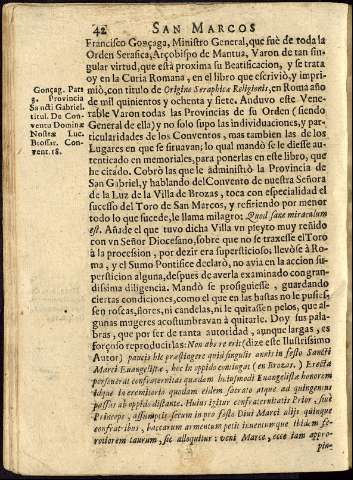 42 SAN MARCOS
Francisco Gonçaga, Ministro General, que fuè de toda la
Orden Serafica, Arçobispo de Mantua, Varon de tan sin-
gular virtud, que està proxima su Beatificacion, y se trata
oy en la Curia Romana, en el libro que escriviò, y impri-
miò, con titulo de Origine Seraphicæ Religionis, en Roma año
de mil quinientos y ochenta y siete. Anduvo este Vene-
rable Varon todas las Provincias de su Orden (siendo
General de ella) y no solo supo las individuaciones, y par-
ticularidades de los Conventos, mas tambien las de los
Lugares en que se situavan; lo qual mandò se le diesse au-
tenticado en memoriales, para ponerlas en este libro, que
he citado. Cobrò las que le administrò la Provincia de
San Gabriel, y hablando del Convento de nuestra Señora
de la Luz de la Villa de Brozas, toca con especialidad el
sucesso del Toro de San Marcos, y refiriendo por menor
todo lo que sucede, le llama milagro: Quod sane miraculum
est. Añade el que tuvo dicha Villa vn pleyto muy reñido
con vn Señor Diocesano, sobre que no se traxesse el Toro
à la procession, por dezir era supersticioso: llevòse à Ro-
ma, y el Sumo Pontifice declarò, no avia en la accion su-
persticion alguna, despues de averla examinado con gran-
dissima diligencia. Mandò se prosiguiesse, guardando
ciertas condiciones, como el que en las hastas no le pusies-
sen roscas, flores, ni candelas, ni le quitassen pelos, que al-
gunas mugeres acostumbravan à quitarle. Doy sus pala-
bras, que por ser de tanta autoridad, aunque largas, es
forçoso reproducirlas: Non abs re erit (dize este Ilustrissimo
Autor) paucis hic præstringere quid singulis annis in festo Sancti
Marci Evangelistæ, hoc in oppido contingat (en Brozas.) Erecta
perseverat confraternitas quædam huiusmodi Evangelistæ honorem
idque in eremitorio quodam eidem sacrato atque ad quingentos
passus ab oppido distante. Huius igitur confraternitatis Prior, sive
Princeps, assumptis secum in pro festo Divi Marci aliis quinque
confratribus, baccarum armentum petit inventumque ibidem fe-
rotiorem taurum, sic alloquitur: veni Marce, ecce iam appro-
pin-
Gonçag. Part.
3. Provincia
Sancti Gabriel.
titul. De Con-
ventu Dominæ
Nostræ Luc.
Brossar. Con-
vent. 18.